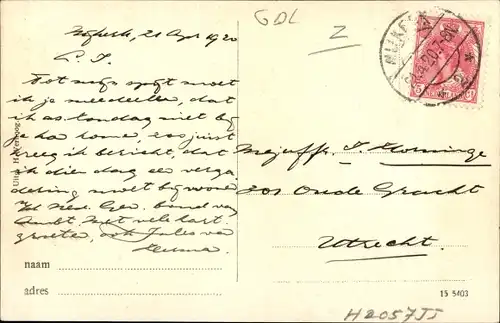 Nijkerk, 21 Apr 1920
L. S.
Tot mijn spijt moet
ik je meedeelen, dat
ik a.s. Zondag niet bij
je kan komen, zoo juist
kreeg ik bericht, dat
ik dien dag een verga-
dering moet bijwonen
Ned.
bond van
Ambt. Met vele hart.
groeten, ook Jules van
naam
adres
GDL
Z
NIJKERK
21.4.20.7-8N
Mejuffr. J.
201 Oude Gracht
Utrecht.
15 5403
H2057II